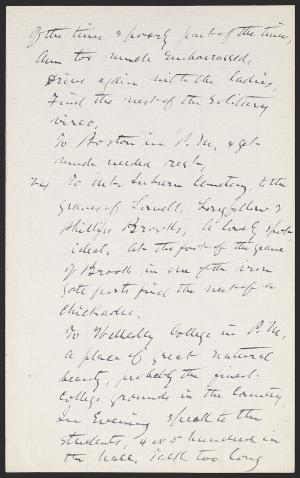 of the time & poorly part of the time,
Am too much embarrassed,
Drive again with the ladies,
Find the nest of the Solitary
vireo,
To Boston in P.M. & get
much needed rest,
24 To Mt. Auburn Cemetery, to the
graves of Lowell, Longfellow &
Phillips Brooks, A lovely spot,
ideal. At the foot of the grave
of Brooks in one of the iron
gate posts find the nest of a
Chickadee.
To Wellesley College in P.M,
A place of great natural
beauty, probably the finest
College grounds in the Country,
In Evening speak to the
students, 4 or 5 hundred in
the hall, Talk too long